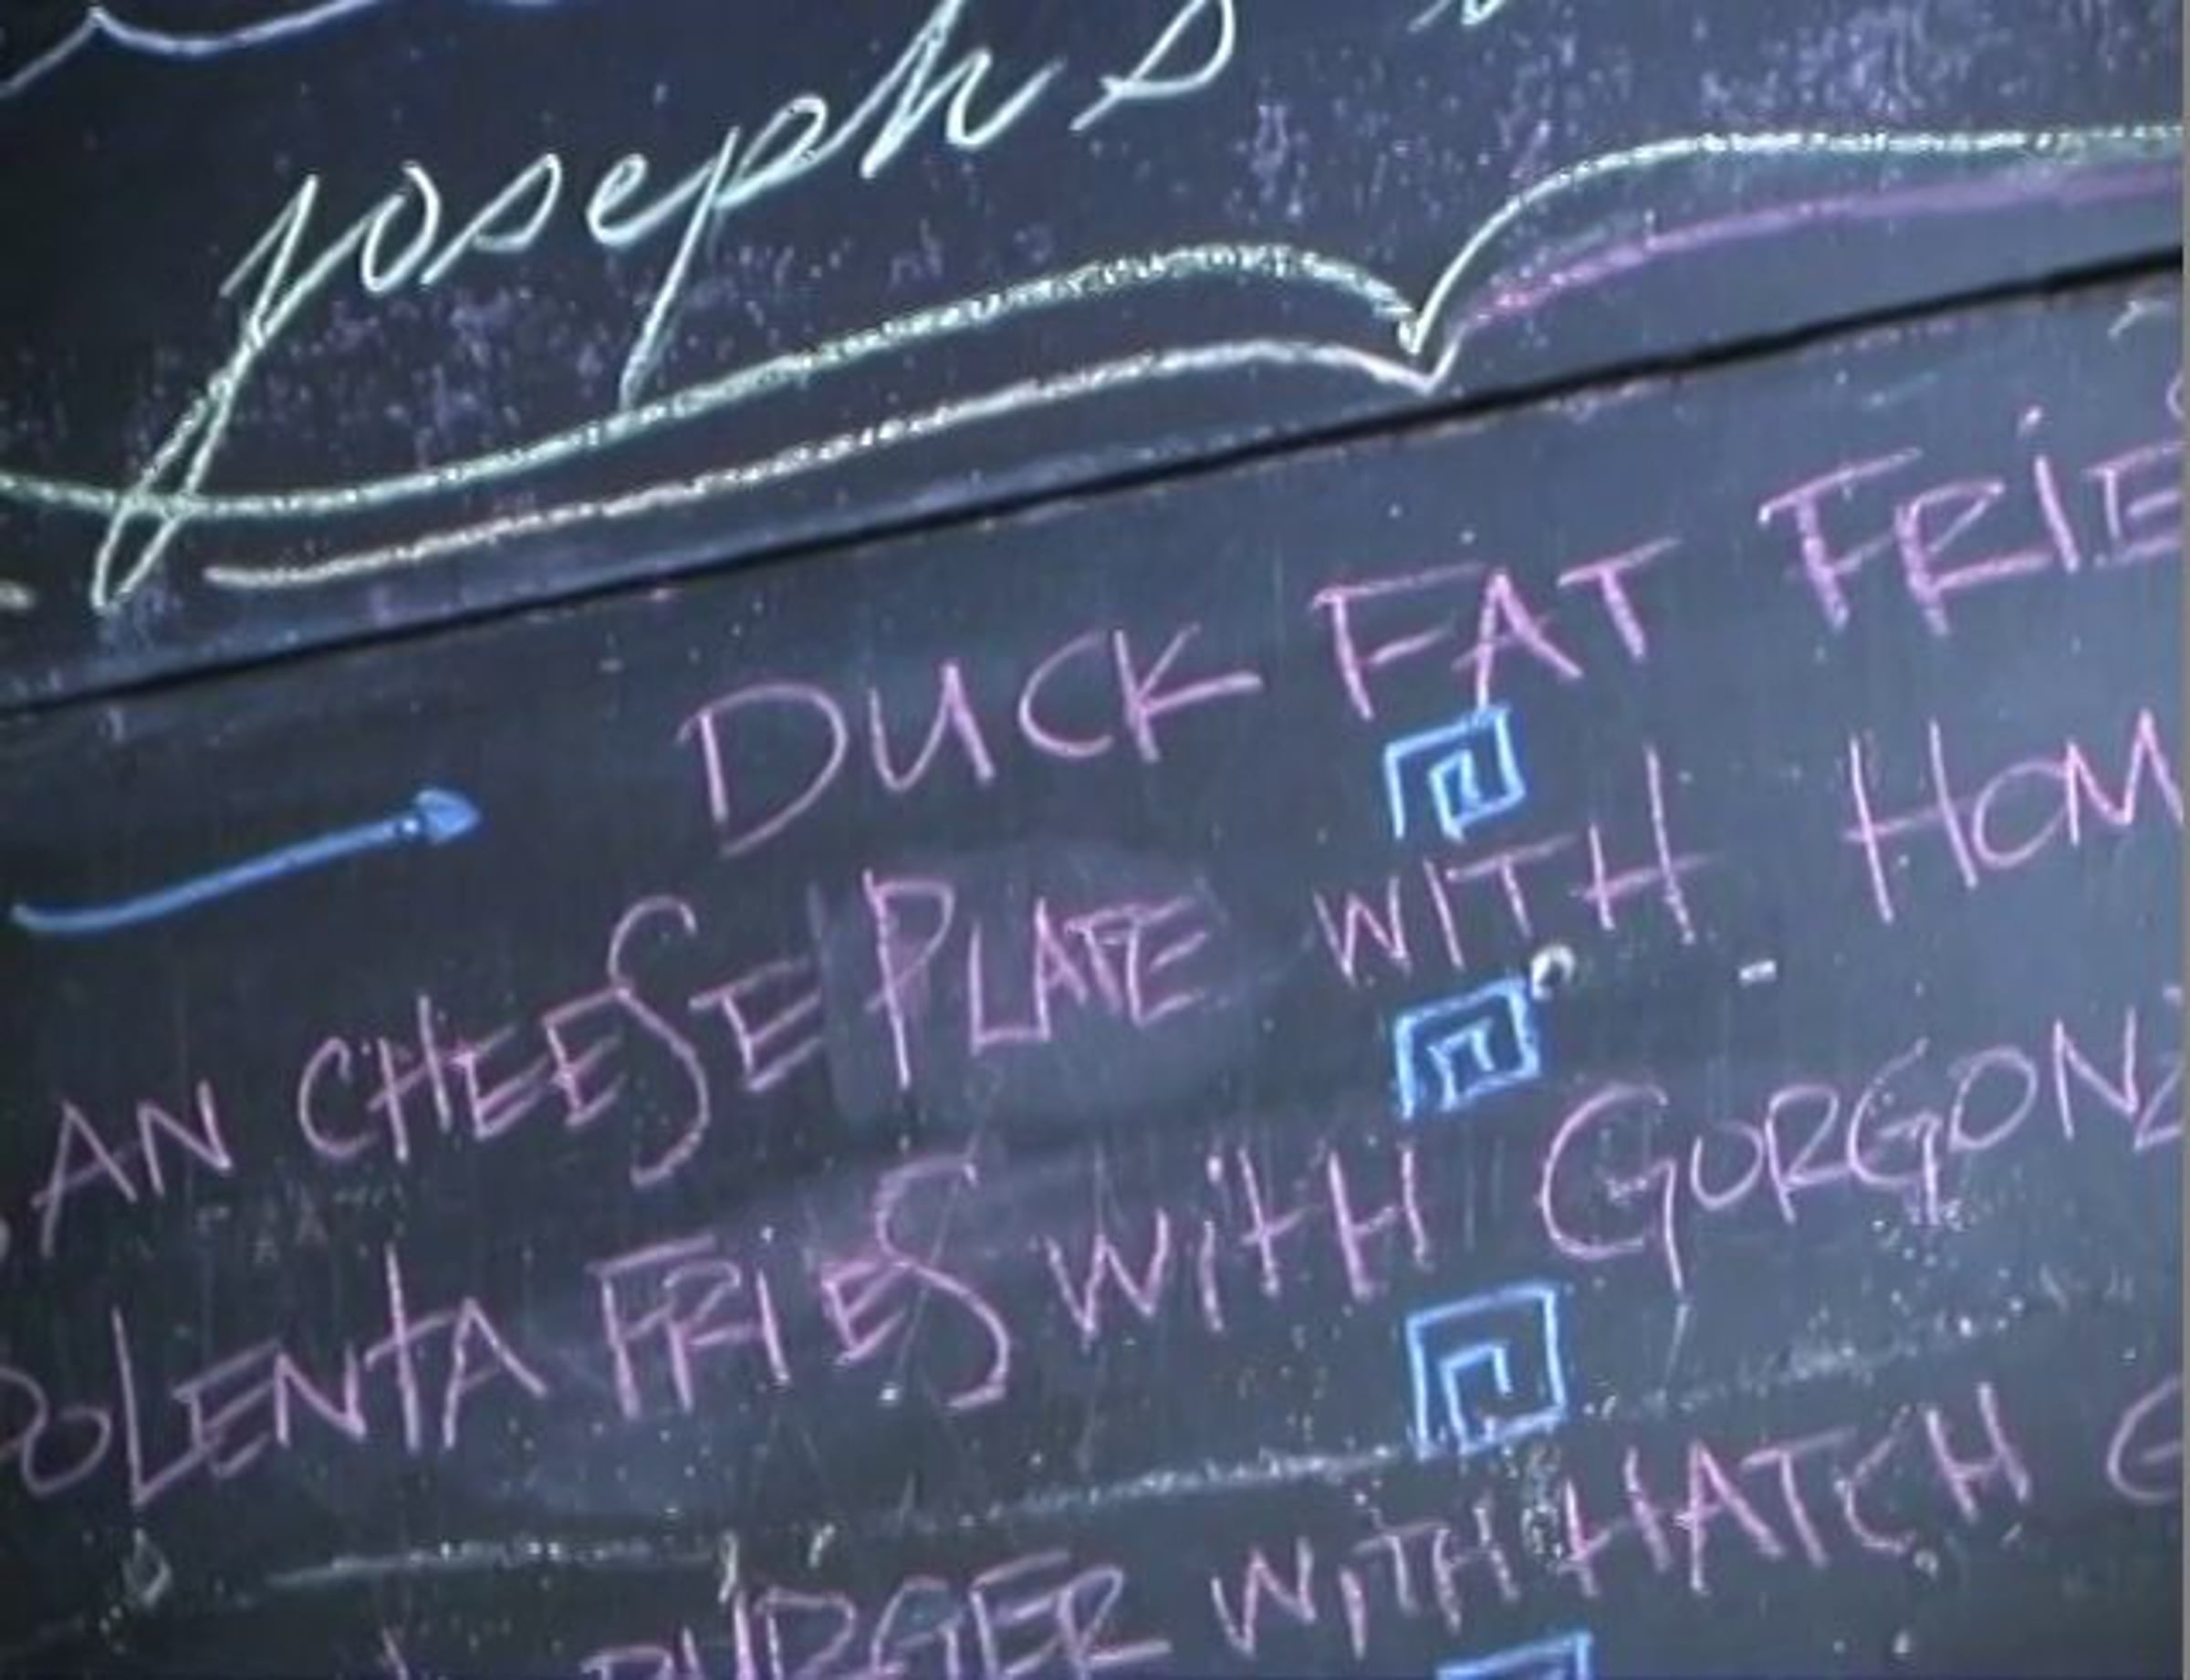 Josephs
DUCK FAT FRIE
AN CHEESE PLATE WITH HOM
POLENTA FRIES WITH GORGONZ
BURGER WITH HATCH G